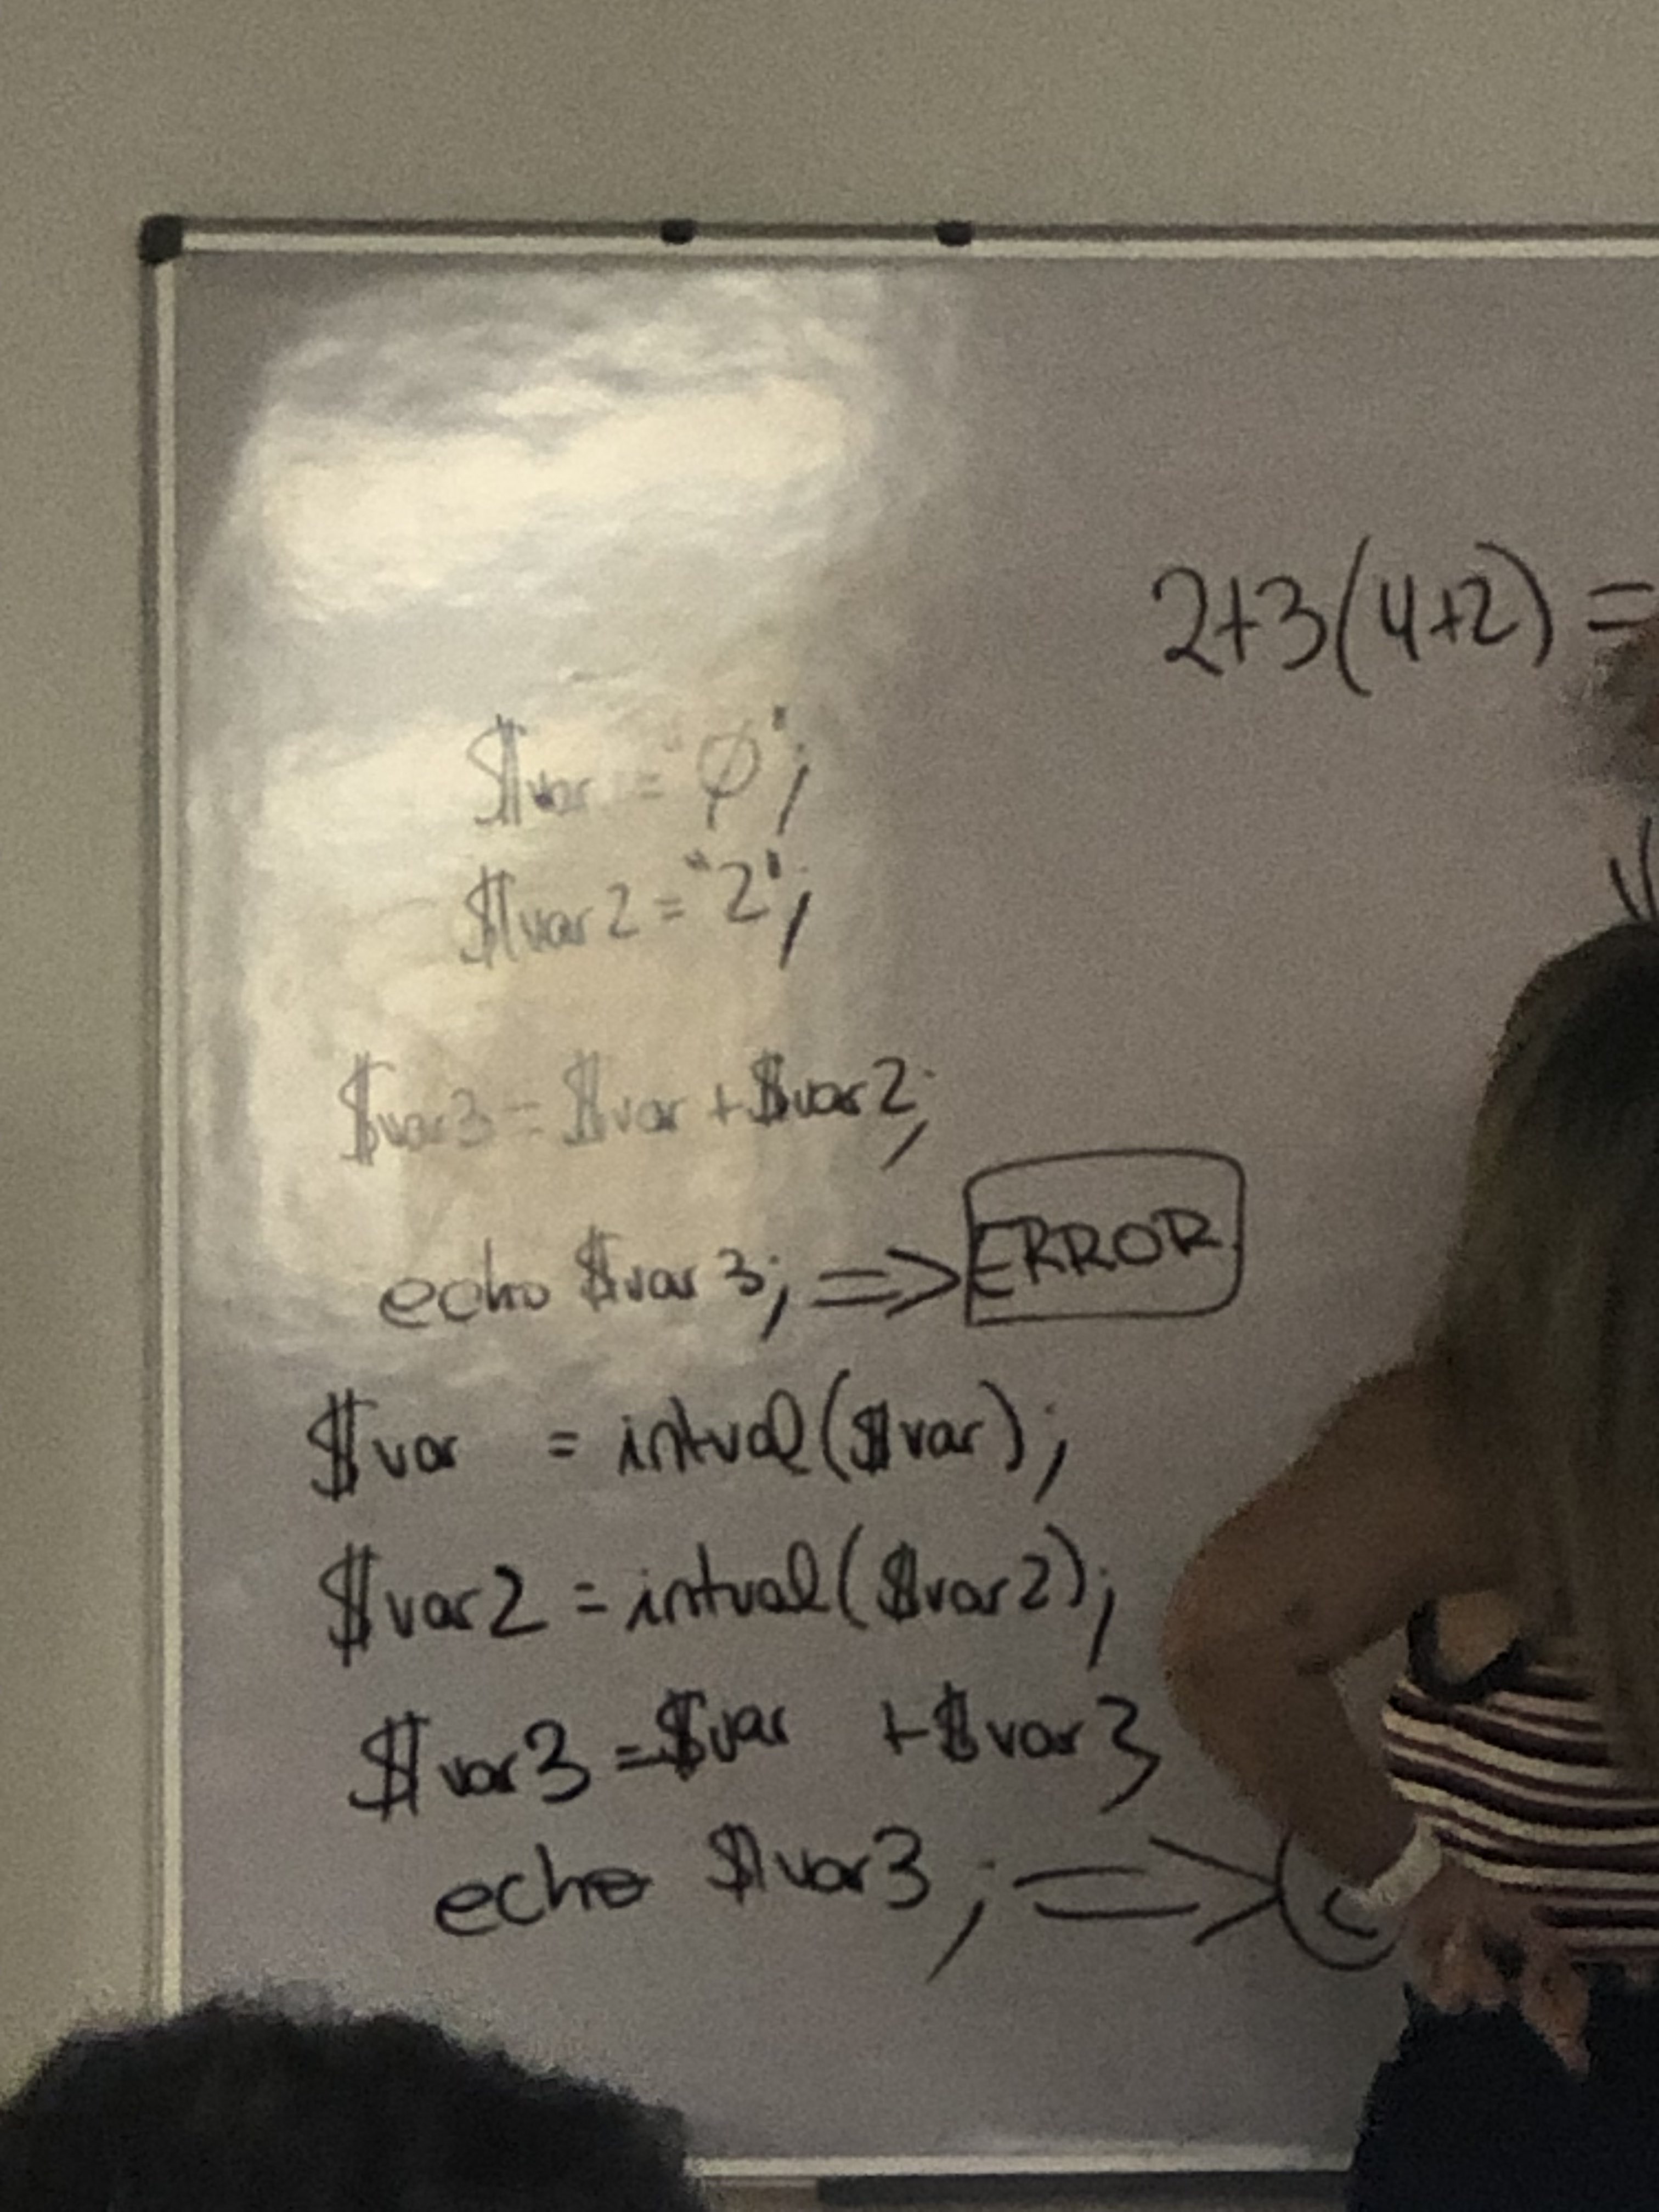 2+3(4+2) =
$var = "0";
$var2 = "2";
$var3 = $var + $var2;
echo $var3; => ERROR
$var = intval($var);
$var2 = intval($var2);
$var3 = $var + $var3
echo $var3; =>